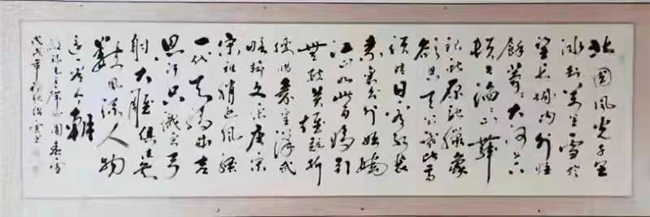 北国风光千里
冰封万里雪飘
望长城内外惟
余莽莽大河上下
顿失滔滔山舞
银蛇原驰蜡象
欲与天公试比高
须晴日看红装
素裹分外妖娆
江山如此多娇引
无数英雄竞折
腰惜秦皇汉武
略输文采唐宗
宋祖稍逊风骚
一代天骄成吉
思汗只识弯弓
射大雕俱往矣
数风流人物
还看今朝
毛主席沁园春雪
戊戌年初秋